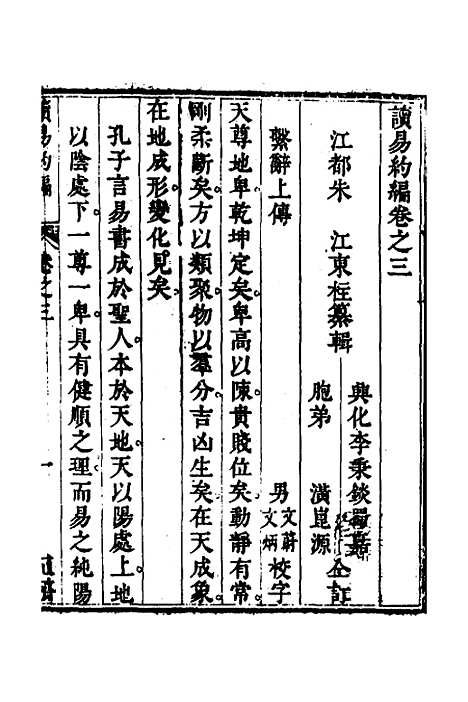 讀易約編卷之三
江都朱 江東柱纂輯
興化李秉錟
胞弟 潢崑源 仝訂
繫辭上傳
男文蔚文炳校字
天尊地卑乾坤定矣卑高以陳貴賤位矣動靜有常
剛柔斷矣方以類聚物以羣分吉凶生矣在天成象
在地成形變化見矣
孔子言易書成於聖人本於天地天以陽處上地
以陰處下一尊一卑具有健順之理而易之純陽
讀易約編 卷之三 一